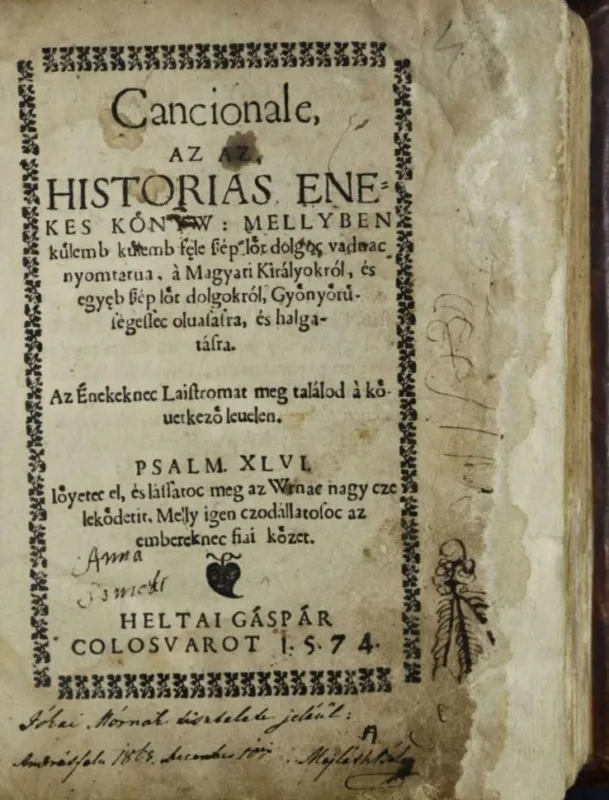 Cancionale,
AZ AZ,
HISTORIAS ENE-
KES KŐNYW: MELLYBEN
kůlemb kůlemb fele ſzép lőt dolgoc vadnac
nyomtatua, à Magyari Királyokról, és
egyęb ſzép lőt dolgokról, Győnyőrů-
ſégeſſec oluaſaſra, és halga-
táſra.
Az Énekeknec Laiſtromat meg találod à kő-
uetkező leuelen.
PSALM. XLVI.
Iőyetec el, és láſſatoc meg az Wrnac nagy cze
lekődetit. Melly igen czodállatoſoc az
embereknec fiai kőzet.
Anna
HELTAI GÁSPÁR
COLOSVAROT 1.5.7 4.
Jókai Mórnak tisztelete jeléűl:
Andrásfalu 186 . december 10én . Majláth Béla